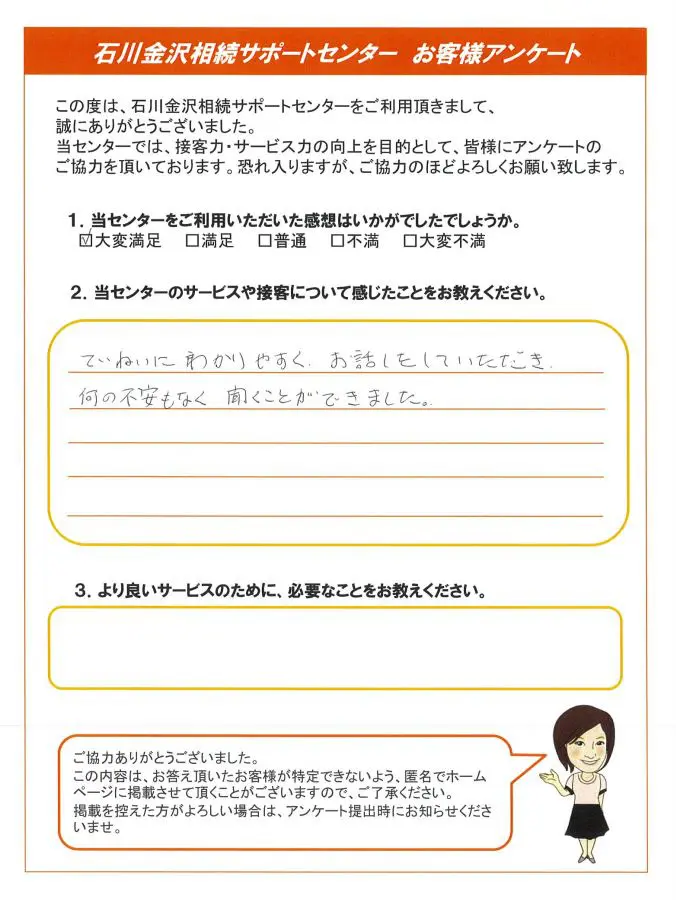 石川金沢相続サポートセンター お客様アンケート
この度は、石川金沢相続サポートセンターをご利用頂きまして、
誠にありがとうございました。
当センターでは、接客力・サービス力の向上を目的として、皆様にアンケートの
ご協力を頂いております。恐れ入りますが、ご協力のほどよろしくお願い致します。
1. 当センターをご利用いただいた感想はいかがでしたでしょうか。
☑大変満足 □満足 □普通 □不満 □大変不満
2. 当センターのサービスや接客について感じたことをお教えください。
ていねいに わかりやすく、お話しをしていただき、
何の不安もなく 聞くことができました。
3. より良いサービスのために、必要なことをお教えください。
ご協力ありがとうございました。
この内容は、お答え頂いたお客様が特定できないよう、匿名でホーム
ページに掲載させて頂くことがございますので、ご了承ください。
掲載を控えた方がよろしい場合は、アンケート提出時にお知らせくださ
いませ。